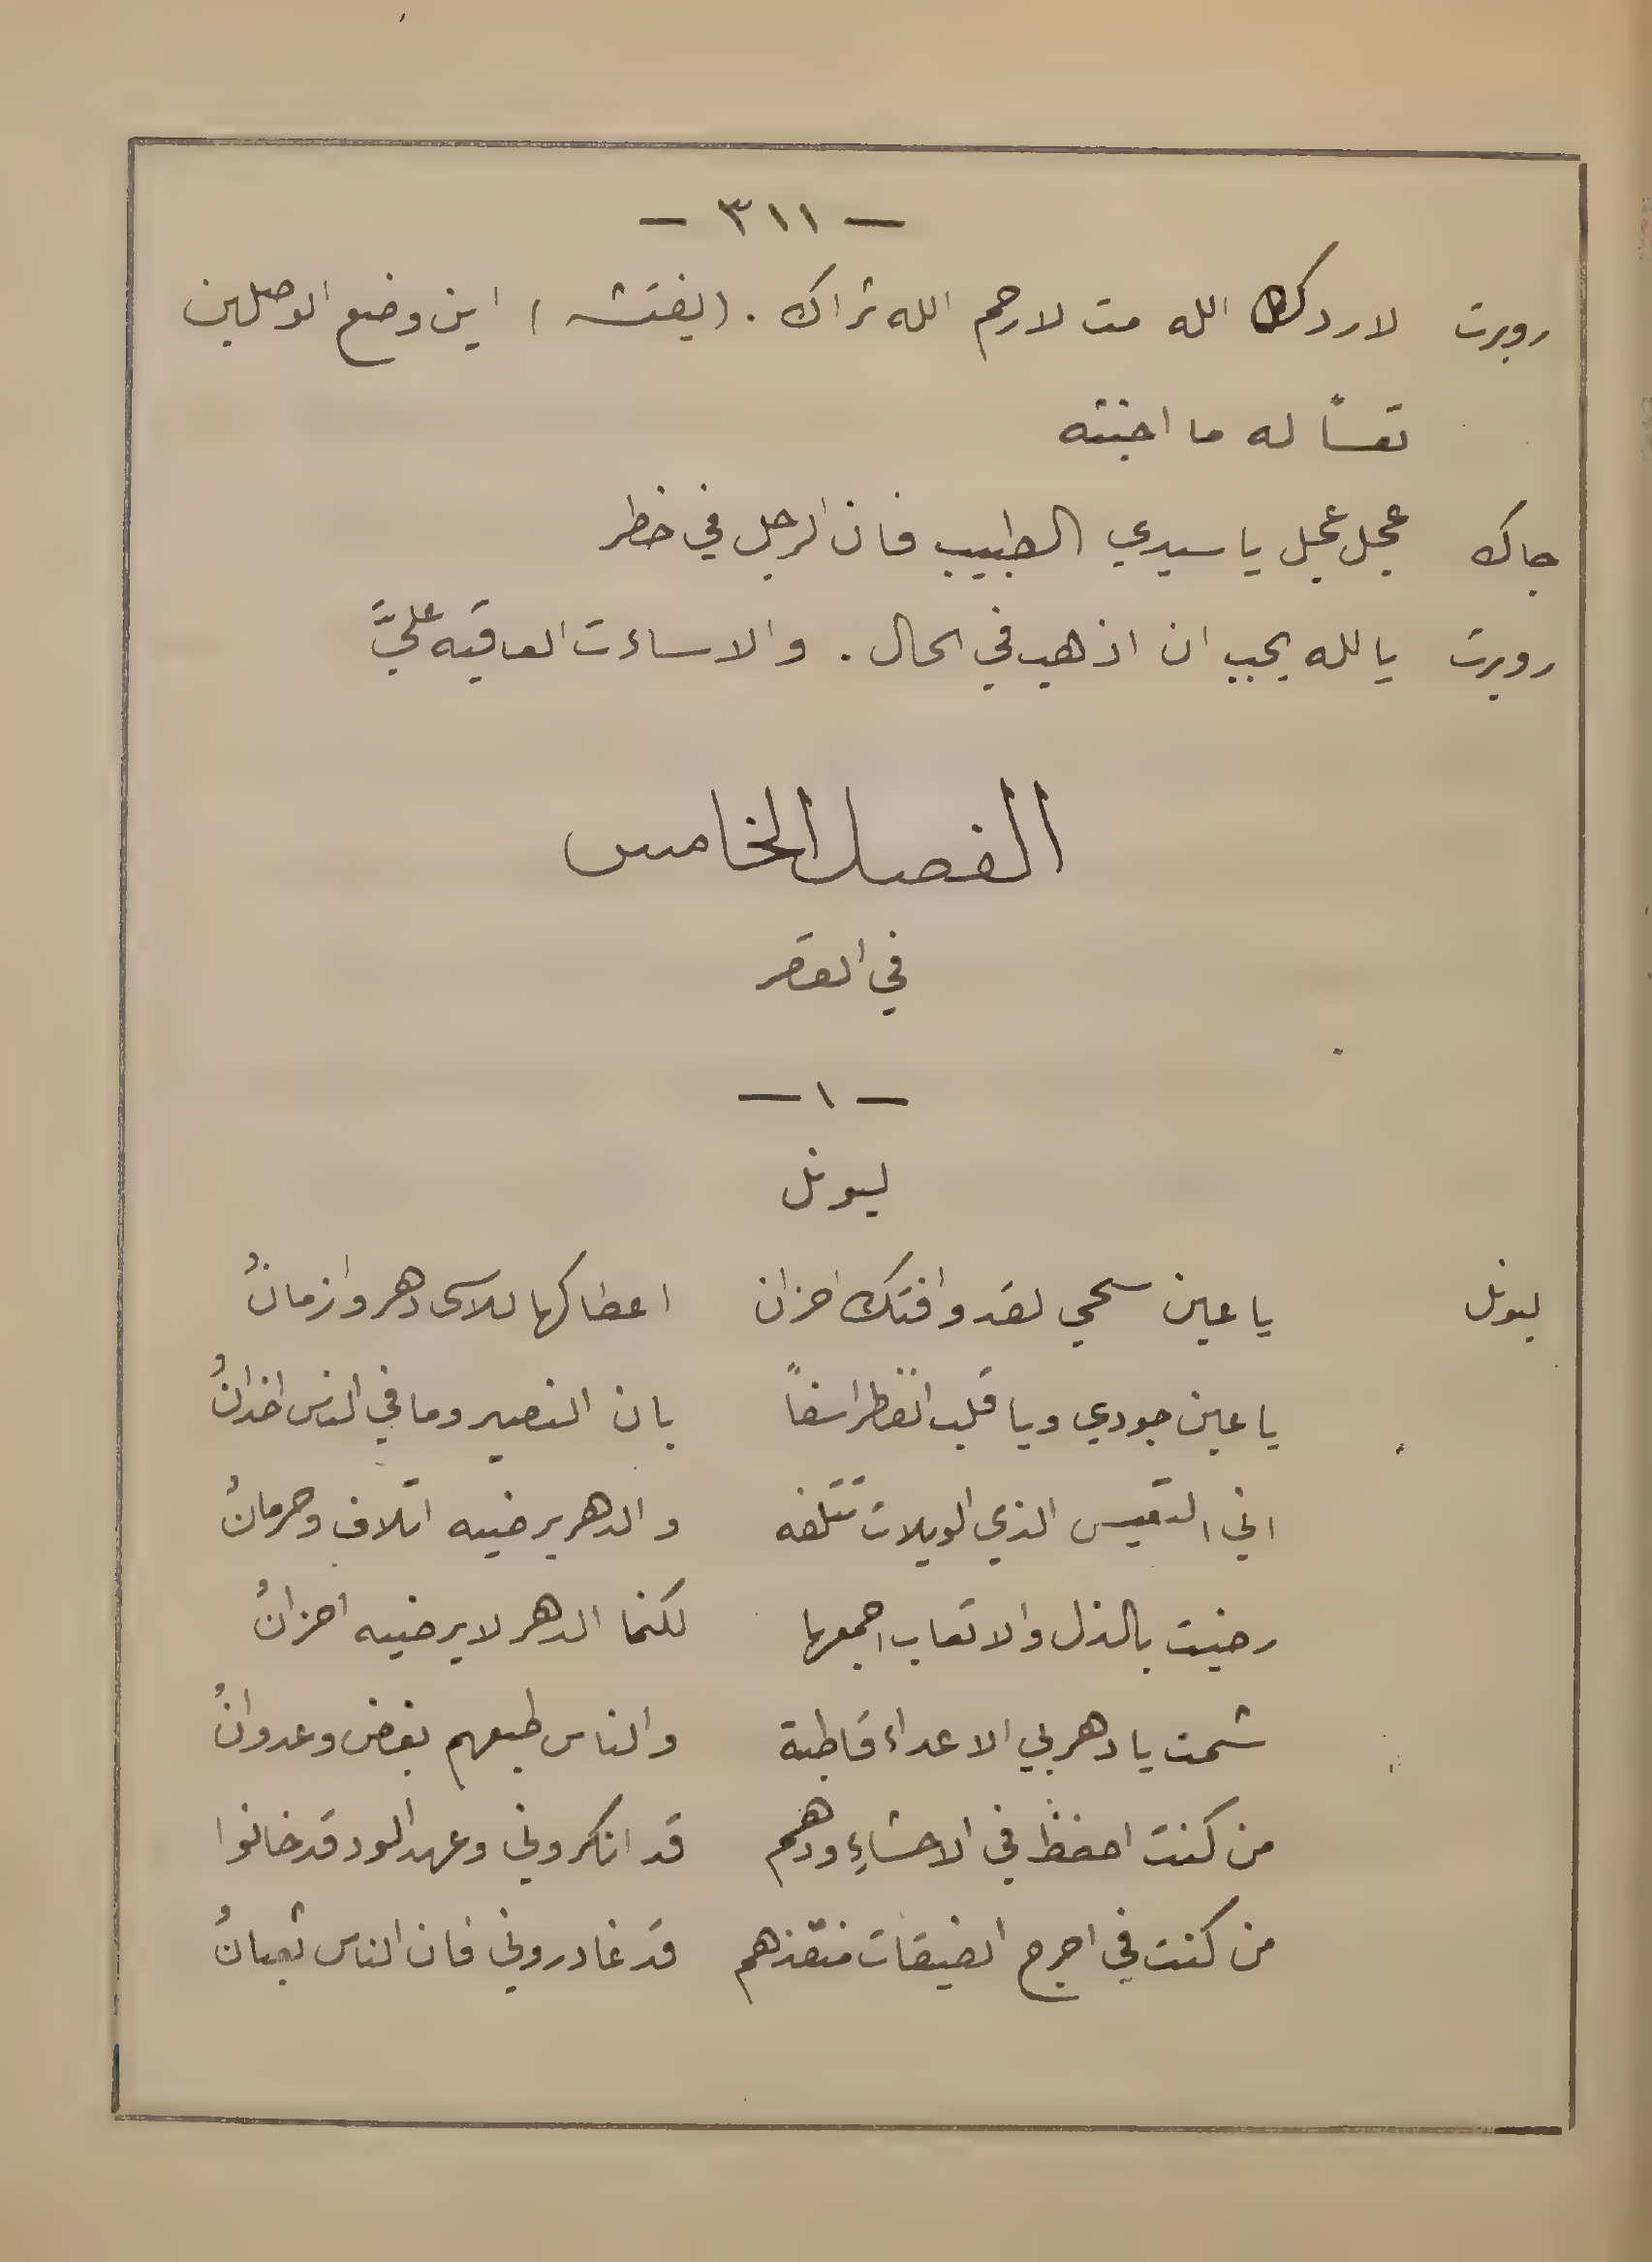 — ٣١١ —
روبرت لاردك الله مت لارحم الله ثراك . (يفتشه) اين وضع الوصلين
تعساً له ما اخبثه
جاك عجل عجل يا سيدي الطبيب فان الرجل في خطر
روبرت يالله يجب ان اذهب في الحال . والا ساءت العاقبه عليَّ
الفصل الخامس
في القصر
— ١ —
ليونل
ليونل يا عين سحي لقد وافتك احزان اعطاكها للاسى دهر وازمانُ
يا عين جودي ويا قلب انفطر اسفاً بان النصير وما في الناس اخدانُ
اني التعيس الذي الويلات تتلفه والدهر يرضيه اتلاف وحرمانُ
رضيت بالذل والاتعاب اجمعها لكنما الدهر لا يرضيه احزانُ
شمت يا دهر بي الاعداء قاطبة والناس طبعهم بغض وعدوانُ
من كنت احفظ في الاحشاءِ ودهم قد انكروني وعهد الود قد خانوا
من كنت في احرج الضيقات منقذهم قد غادروني فان الناس ثعبانُ